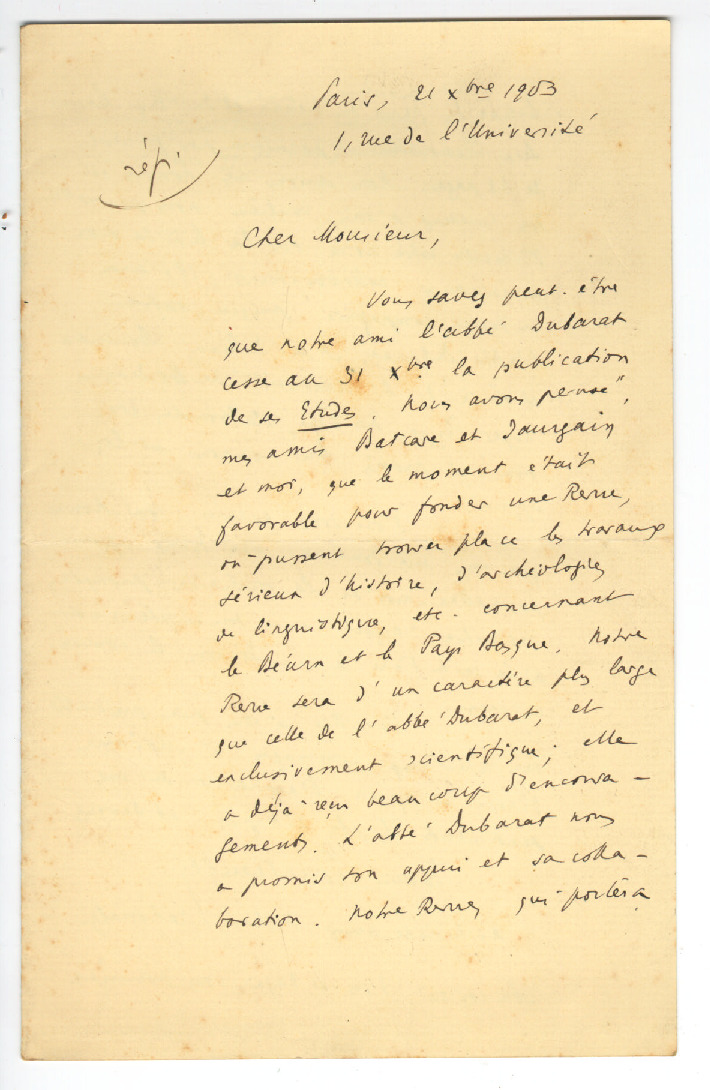 Paris, 21 Xbre 1903
1, rue de l'Université
rép.
Cher Monsieur,
Vous savez peut-être
que notre ami l'abbé Dubarat
cesse au 31 Xbre la publication
de ses Etudes. Nous avons pensé,
mes amis Batcave et Jaurgain
et moi, que le moment était
favorable pour fonder une Revue,
où pussent trouver place les travaux
sérieux d'histoire, d'archéologie,
de linguistique, etc. concernant
le Béarn et le Pays Basque. Notre
Revue sera d'un caractère plus large
que celle de l'abbé Dubarat, et
exclusivement scientifique; elle
a déjà reçu beaucoup d'encoura-
gements. L'abbé Dubarat nous
a promis son appui et sa colla-
boration. Notre Revue, qui portera